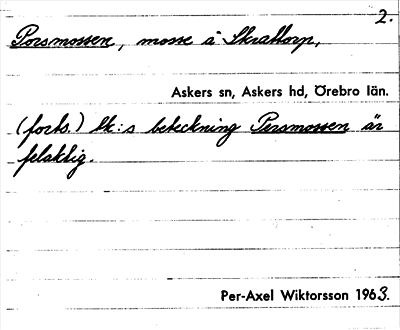 2.
Porsmossen, mosse å Skrattorp,
Askers sn, Askers hd, Örebro län.
(forts.) Ek:s beteckning Persmossen är
felaktig.
Per-Axel Wiktorsson 1963.